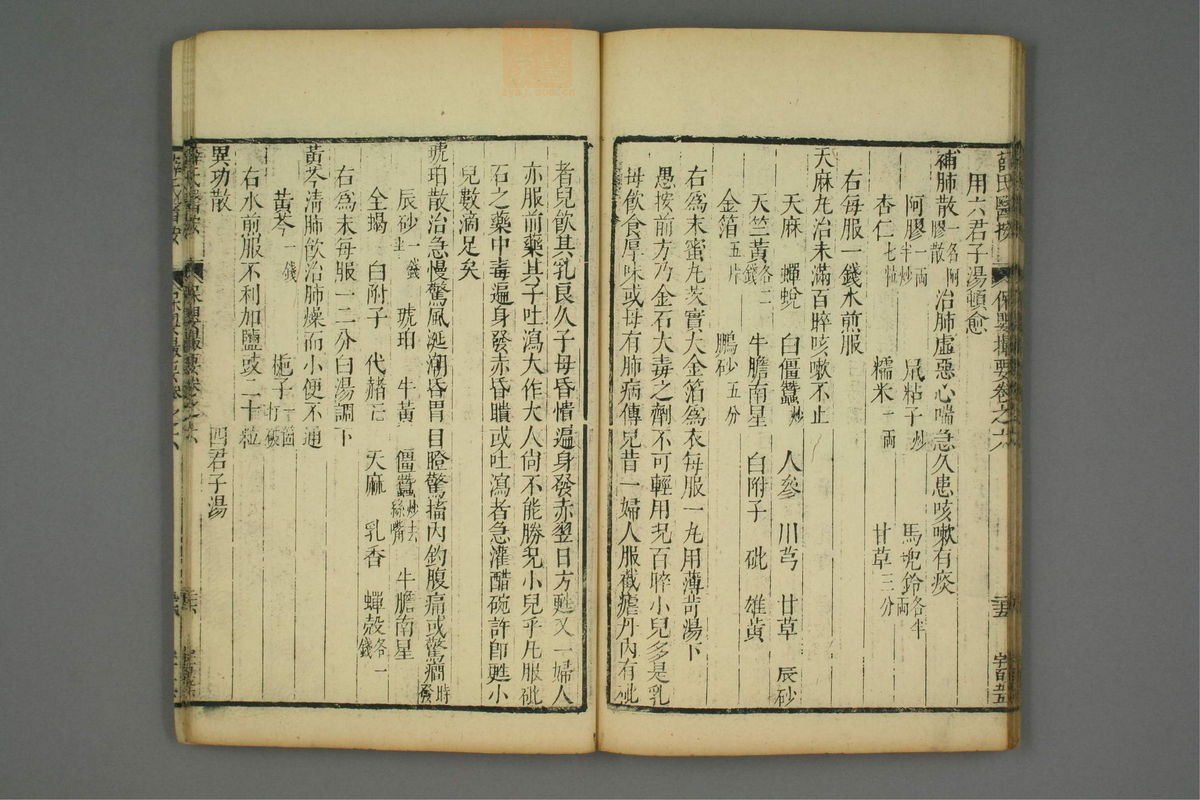 薛氏醫按 保嬰撮要卷之六
用六君子湯頓愈
補肺散一名阿膠散 治肺虛惡心喘急久患咳嗽有痰
阿膠一兩半炒 鼠粘子炒 馬兜鈴各半兩
杏仁七粒 糯米一兩 甘草三分
右每服一錢水煎服
天麻丸治未滿百晬咳嗽不止
天麻 蟬蛻 白僵蠶炒 人參 川芎 甘草 辰砂
天竺黃各二錢 牛膽南星 白附子 砒 雄黃
金箔五片 鵬砂五分
右爲末蜜丸芡實大金箔爲衣每服一丸用薄荷湯下
愚按前方乃金石大毒之劑不可輕用况百晬小兒多是乳
母飲食厚味或母有肺病傳兒昔一婦人服截瘧丹內有砒
者兒飲其乳良久子母昏憒遍身發赤翌日方甦又一婦人
亦服前藥其子吐瀉大作大人尙不能勝况小兒乎凡服砒
石之藥中毒遍身發赤昏瞶或吐瀉者急灌醋碗許卽甦小
兒數滴足矣
琥珀散治急慢驚風涎潮昏冒目瞪驚搐內釣腹痛或驚癇時發
辰砂一錢半 琥珀 牛黃 僵蠶炒去絲嘴 牛膽南星
全蝎 白附子 代赭石 天麻 乳香 蟬殼各一錢
右爲末每服一二分白湯調下
黃芩清肺飲治肺燥而小便不通
黃芩一錢 梔子一箇打破
右水煎服不利加鹽豉二十粒
異功散 四君子湯